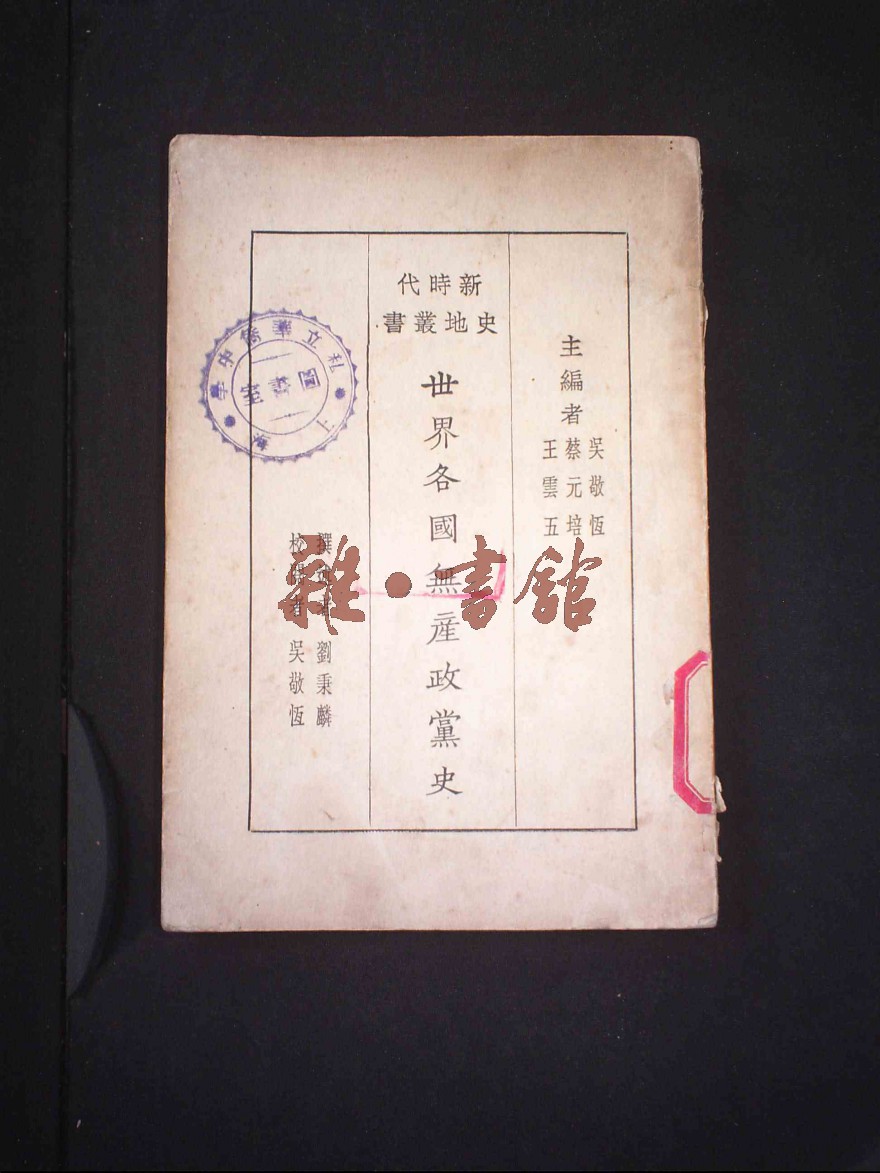 主編者
吳敬恆
蔡元培
王雲五
新時代
史地叢書
世界各國無產政黨史
撰述者 劉秉麟
校閱者 吳敬恆
私立華僑中學
圖書室
上海
雜·書館